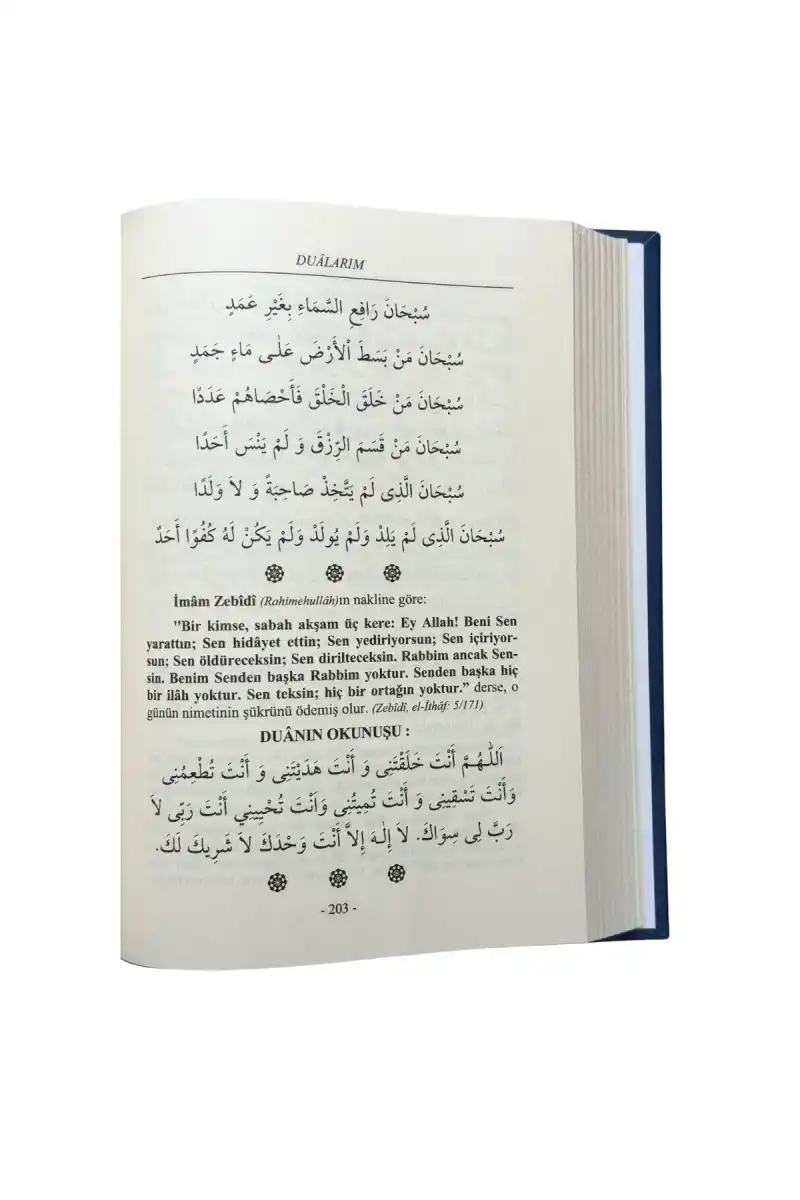 DUÂLARIM
سُبْحَانَ رَافِعِ السَّمَاءِ بِغَيْرِ عَمَدٍ
سُبْحَانَ مَنْ بَسَطَ اْلأَرْضَ عَلٰى مَاءٍ جَمَدٍ
سُبْحَانَ مَنْ خَلَقَ الْخَلْقَ فَأَحْصَاهُمْ عَدَدًا
سُبْحَانَ مَنْ قَسَمَ الرِّزْقَ وَ لَمْ يَنْسَ أَحَدًا
سُبْحَانَ الَّذِى لَمْ يَتَّخِذْ صَاحِبَةً وَ لاَ وَلَدًا
سُبْحَانَ الَّذِى لَمْ يَلِدْ وَلَمْ يُولَدْ وَلَمْ يَكُنْ لَهُ كُفُوًا أَحَدٌ
İmâm Zebîdî (Rahimehullâh)ın nakline göre:
"Bir kimse, sabah akşam üç kere: Ey Allah! Beni Sen
yarattın; Sen hidâyet ettin; Sen yediriyorsun; Sen içiriyor-
sun; Sen öldüreceksin; Sen dirilteceksin. Rabbim ancak Sen-
sin. Benim Senden başka Rabbim yoktur. Senden başka hiç
bir ilâh yoktur. Sen teksin; hiç bir ortağın yoktur.” derse, o
günün nimetinin şükrünü ödemiş olur. (Zebîdî, el-İthâf: 5/171)
DUÂNIN OKUNUŞU :
اَللّٰهُمَّ أَنْتَ خَلَقْتَنِى وَ أَنْتَ هَدَيْتَنِى وَ أَنْتَ تُطْعِمُنِى
وَأَنْتَ تَسْقِينِى وَ أَنْتَ تُمِيتُنِى وَاَنْتَ تُحْيِينِي أَنْتَ رَبِّى لاَ
رَبَّ لِى سِوَاكَ. لاَ إِلٰهَ إِلاَّ أَنْتَ وَحْدَكَ لاَ شَرِيكَ لَكَ.
- 203 -